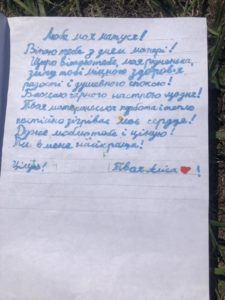 Люба моя матуся!
Вітаю тебе з днем матері!
Щиро вітаю тебе, моя рідненька,
зичу тобі міцного здоров'я
радості і душевного спокою!
Бажаю гарного настрою щодня!
Твоя материнська турбота і тепло
постійно зігріває моє серце!
Дуже люблю тебе і цілую!
Ти в мене найкраща!
Цілую! Твоя Аліса ❤!